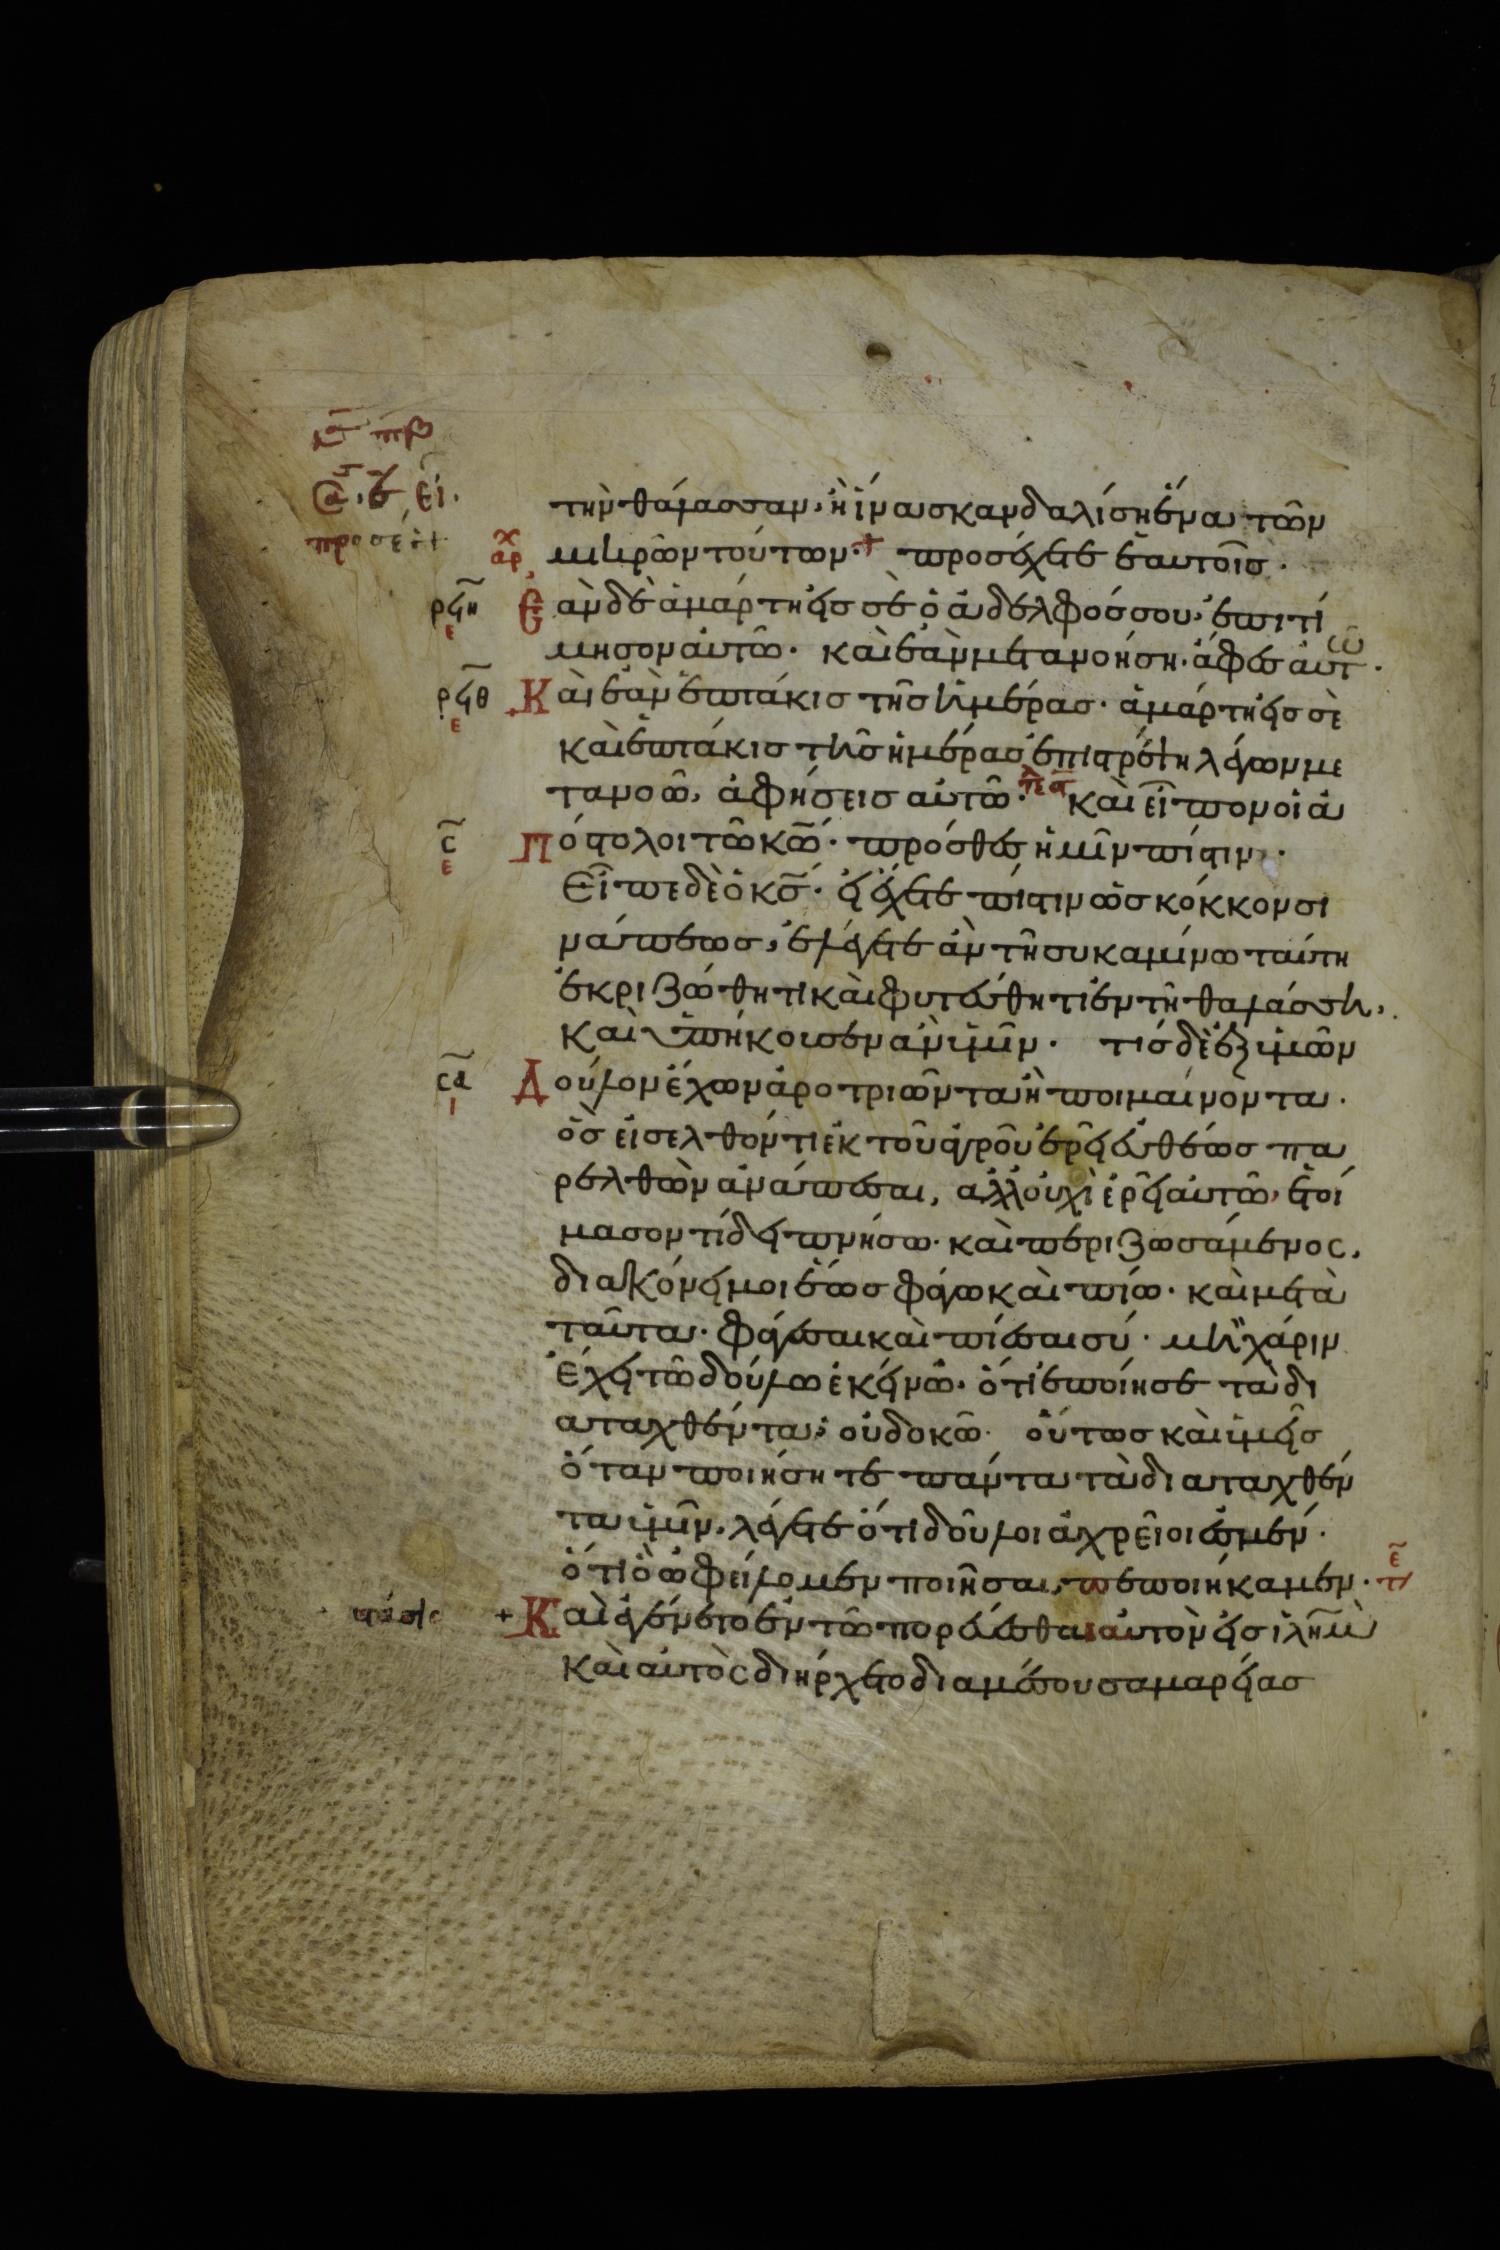 τὴν θάλασσαν, ἢ ἵνα σκανδαλίση ἕνα τῶν
μικρῶν τούτων·+ προσέχετε ἑαυτοῖς·
ρϟη ε Ἐὰν δὲ ἁμάρτη εἰς σὲ ὁ ἀδελφός σου, ἐπιτί
μησον αὐτῶ· καὶ ἐὰν μετανοήση· ἄφες αὐτῶ·
ρϟθ ε Καὶ ἐὰν ἑπτάκις τῆς ἡμέρας· ἁμάρτη εἰς σὲ
καὶ ἑπτάκις τῆς ἡμέρας ἐπιστρέψη λέγων με
τανοῶ, ἀφήσεις αὐτῶ· καὶ εἶπον οἱ ἀ
ς ε Πόστολοι τῶ κω· πρόσθες ἡμῖν πίστιν·
Εἶπε δὲ ὁ κς· εἰ ἔχετε πίστιν ὡς κόκκον σι
νάπεως, ἐλέγετε ἂν τῆ συκαμίνω ταύτη
ἐκριζώθητι καὶ φυτεύθητι ἐν τῆ θαλάσση,
καὶ ὑπήκουσεν ἂν ὑμῖν· τίς δὲ ἐξ ὑμῶν
σα ι Δοῦλον ἔχων ἀροτριῶντα ἢ ποιμαίνοντα·
ὃς εἰσελθόντι ἐκ τοῦ ἀγροῦ ἐρεῖ εὐθέως πα
ρελθὼν ἀνάπεσαι, ἀλλ' οὐχὶ ἐρεῖ αὐτῶ, ἑτοί
μασον τί δειπνήσω· καὶ περιζωσάμενος,
διακόνει μοι ἕως φάγω καὶ πίω· καὶ μετὰ
ταῦτα· φάγεσαι καὶ πίεσαι σύ· μὴ χάριν
ἔχει τῶ δούλω ἐκείνω· ὅτι ἐποίησε τὰ δι
αταχθέντα; οὐ δοκῶ· οὕτως καὶ ὑμεῖς
ὅταν ποιήσητε πάντα τὰ διαταχθέν
τα ὑμῖν, λέγετε ὅτι δοῦλοι ἀχρεῖοι ἐσμέν·
ὅτι ὃ ὠφείλομεν ποιῆσαι, πεποιήκαμεν·
+ Καὶ ἐγένετο ἐν τῶ πορεύεσθαι αὐτὸν εἰς ἱλημ
καὶ αὐτὸς διήρχετο διὰ μέσου σαμαρείας